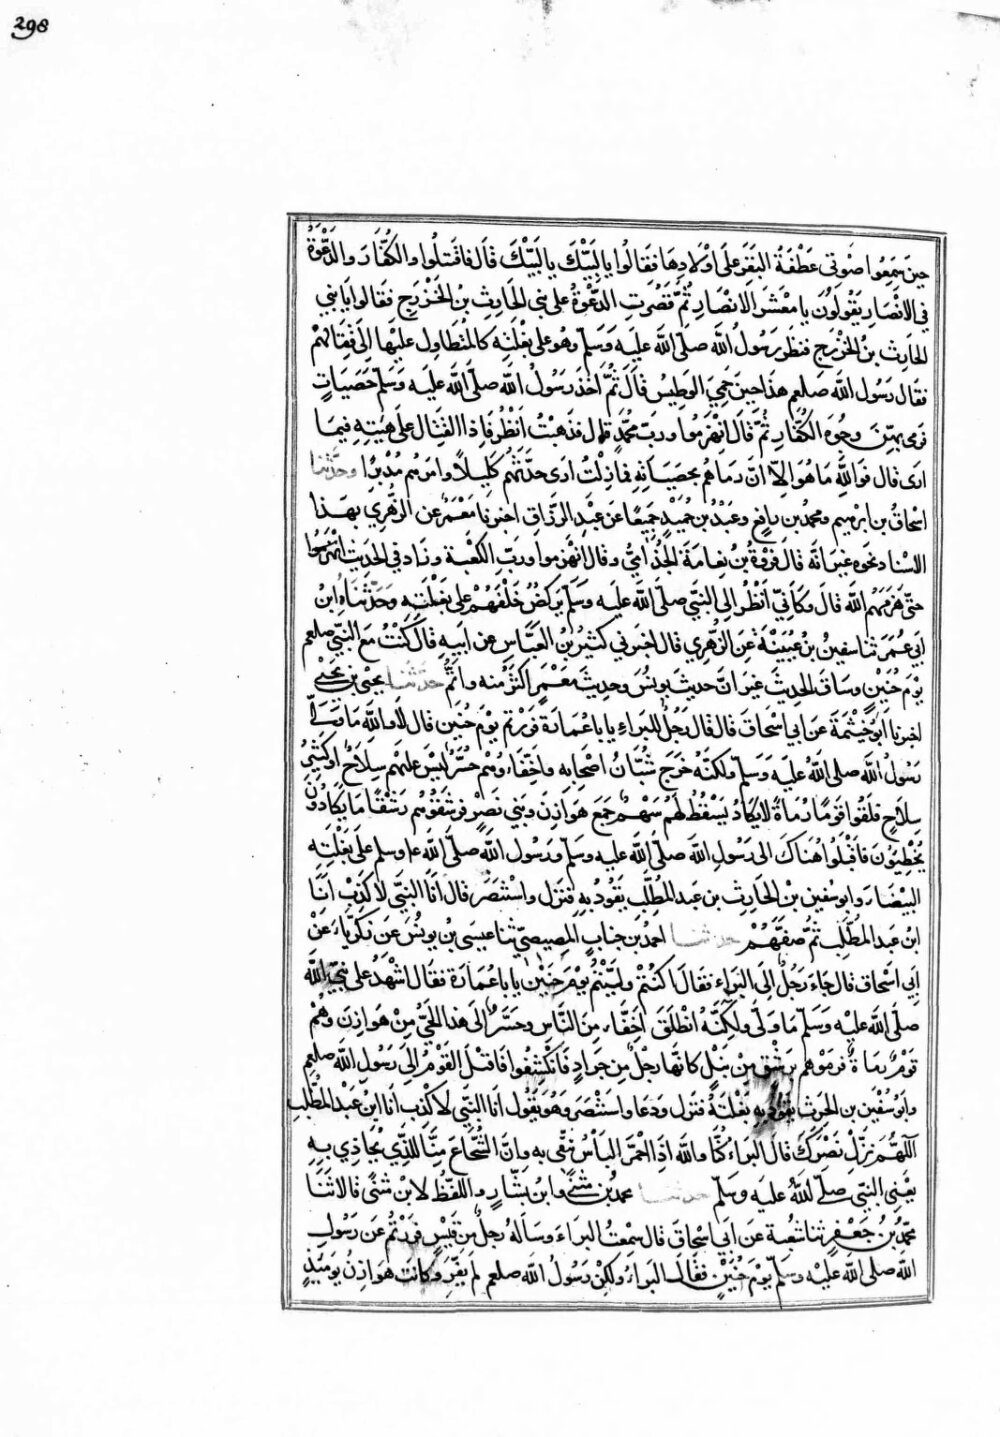 298
حين سمعوا صوتى عطفة البقر على اولادها فقالوا يالبيك يالبيك قال فاقتتلوا والكفار والدعوة
في الانصار يقولون يا معشر الانصار ثم قصرت الدعوة على بني الحارث بن الخزرج فقالوا يا بني
الحارث بن الخزرج فنظر رسول الله صلى الله عليه وسلم وهو على بغلته كالمتطاول عليها الى قتالهم
فقال رسول الله صلعم هذا حين حمي الوطيس قال ثم اخذ رسول الله صلى الله عليه وسلم حصيات
فرمى بهن وجوه الكفار ثم قال انهزموا ورب محمد قال فذهبت انظر فاذا القتال على هيئته فيما
ارى قال فوالله ما هو الا ان رماهم بحصياته فمازلت ارى حدهم كليلا وامرهم مدبرا وحدثنا
اسحاق بن ابرهيم ومحمد بن رافع وعبد بن حميد جميعا عن عبد الرزاق اخبرنا معمر عن الزهري بهذا
الاسناد نحوه غير انه قال فروة بن نعامة الجذامي وقال انهزموا ورب الكعبة وزاد في الحديث انهزموا
حتى هزمهم الله قال وكاني انظر الى النبي صلى الله عليه وسلم يركض خلفهم على بغلته وحدثناه ابن
ابي عمر ثنا سفين بن عيينة عن الزهري قال اخبرني كثير بن العباس عن ابيه قال كنت مع النبي صلعم
يوم حنين وساق الحديث غير ان حديث يونس وحديث معمر اكثر منه واتم حدثنا يحيى بن يحيى
اخبرنا ابو خيثمة عن ابي اسحاق قال قال رجل للبراء يا با عمارة فررتم يوم حنين قال لا والله ما ولى
رسول الله صلى الله عليه وسلم ولكنه خرج شبان اصحابه واخفاؤهم حسرا ليس عليهم سلاح او كثير
سلاح فلقوا قوما رماة لا يكاد يسقط لهم سهم جمع هوازن وبني نصر فرشقوهم رشقا ما يكادون
يخطيون فاقبلوا هناك الى رسول الله صلى الله عليه وسلم ورسول الله صلى الله عليه وسلم على بغلته
البيضاء وابو سفين بن الحارث بن عبد المطلب يقود به فنزل واستنصر قال انا النبي لا كذب انا
ابن عبد المطلب ثم صفهم حدثنا احمد بن جناب المصيصي ثنا عيسى بن يونس عن زكرياء عن
ابي اسحاق قال جاء رجل الى البراء فقال اكنتم وليتم يوم حنين يا با عمارة فقال اشهد على نبي الله
صلى الله عليه وسلم ما ولى ولكنه انطلق اخفاء من الناس وحسر الى هذا الحي من هوازن وهم
قوم رماة فرموهم برشق من نبل كانها رجل من جراد فانكشفوا فاقبل القوم الى رسول الله صلعم
وابو سفين بن الحرث يقود به بغلته فنزل ودعا واستنصر وهو يقول انا النبي لا كذب انا ابن عبد المطلب
اللهم نزل نصرك قال البراء كنا والله اذا احمر الباس نتقي به وان الشجاع منا للذي يحاذي به
يعني النبي صلى الله عليه وسلم حدثنا محمد بن مثنى وابن بشار واللفظ لابن مثنى قالا ثنا
محمد بن جعفر ثنا شعبة عن ابي اسحاق قال سمعت البراء وساله رجل من قيس فررتم عن رسول
الله صلى الله عليه وسلم يوم حنين فقال البراء ولكن رسول الله صلعم لم يفر وكانت هوازن يوميذ